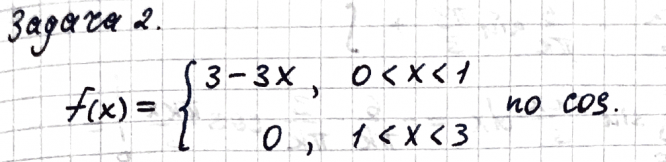 Задача 2.
f(x) = { 3-3x, 0<x<1
0, 1<x<3 по cos.